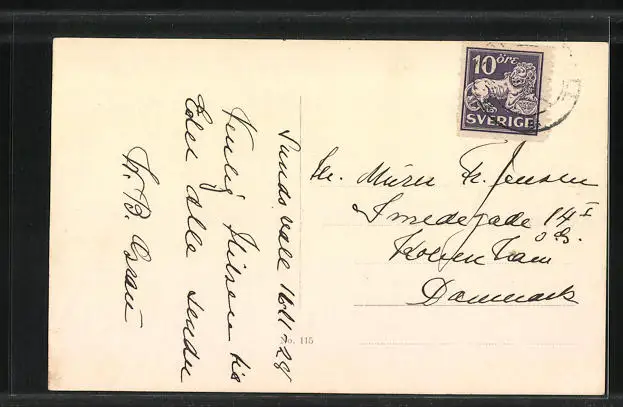 10 ÖRE
SVERIGE
Sundsvall 16/11-28
Venlig Hilsen til
Eder alle sender
Fr. B.
Hr. Murer Fr. Jensen
Smedegade 14 I
o G.
Kobenham
Danmark
No. 115